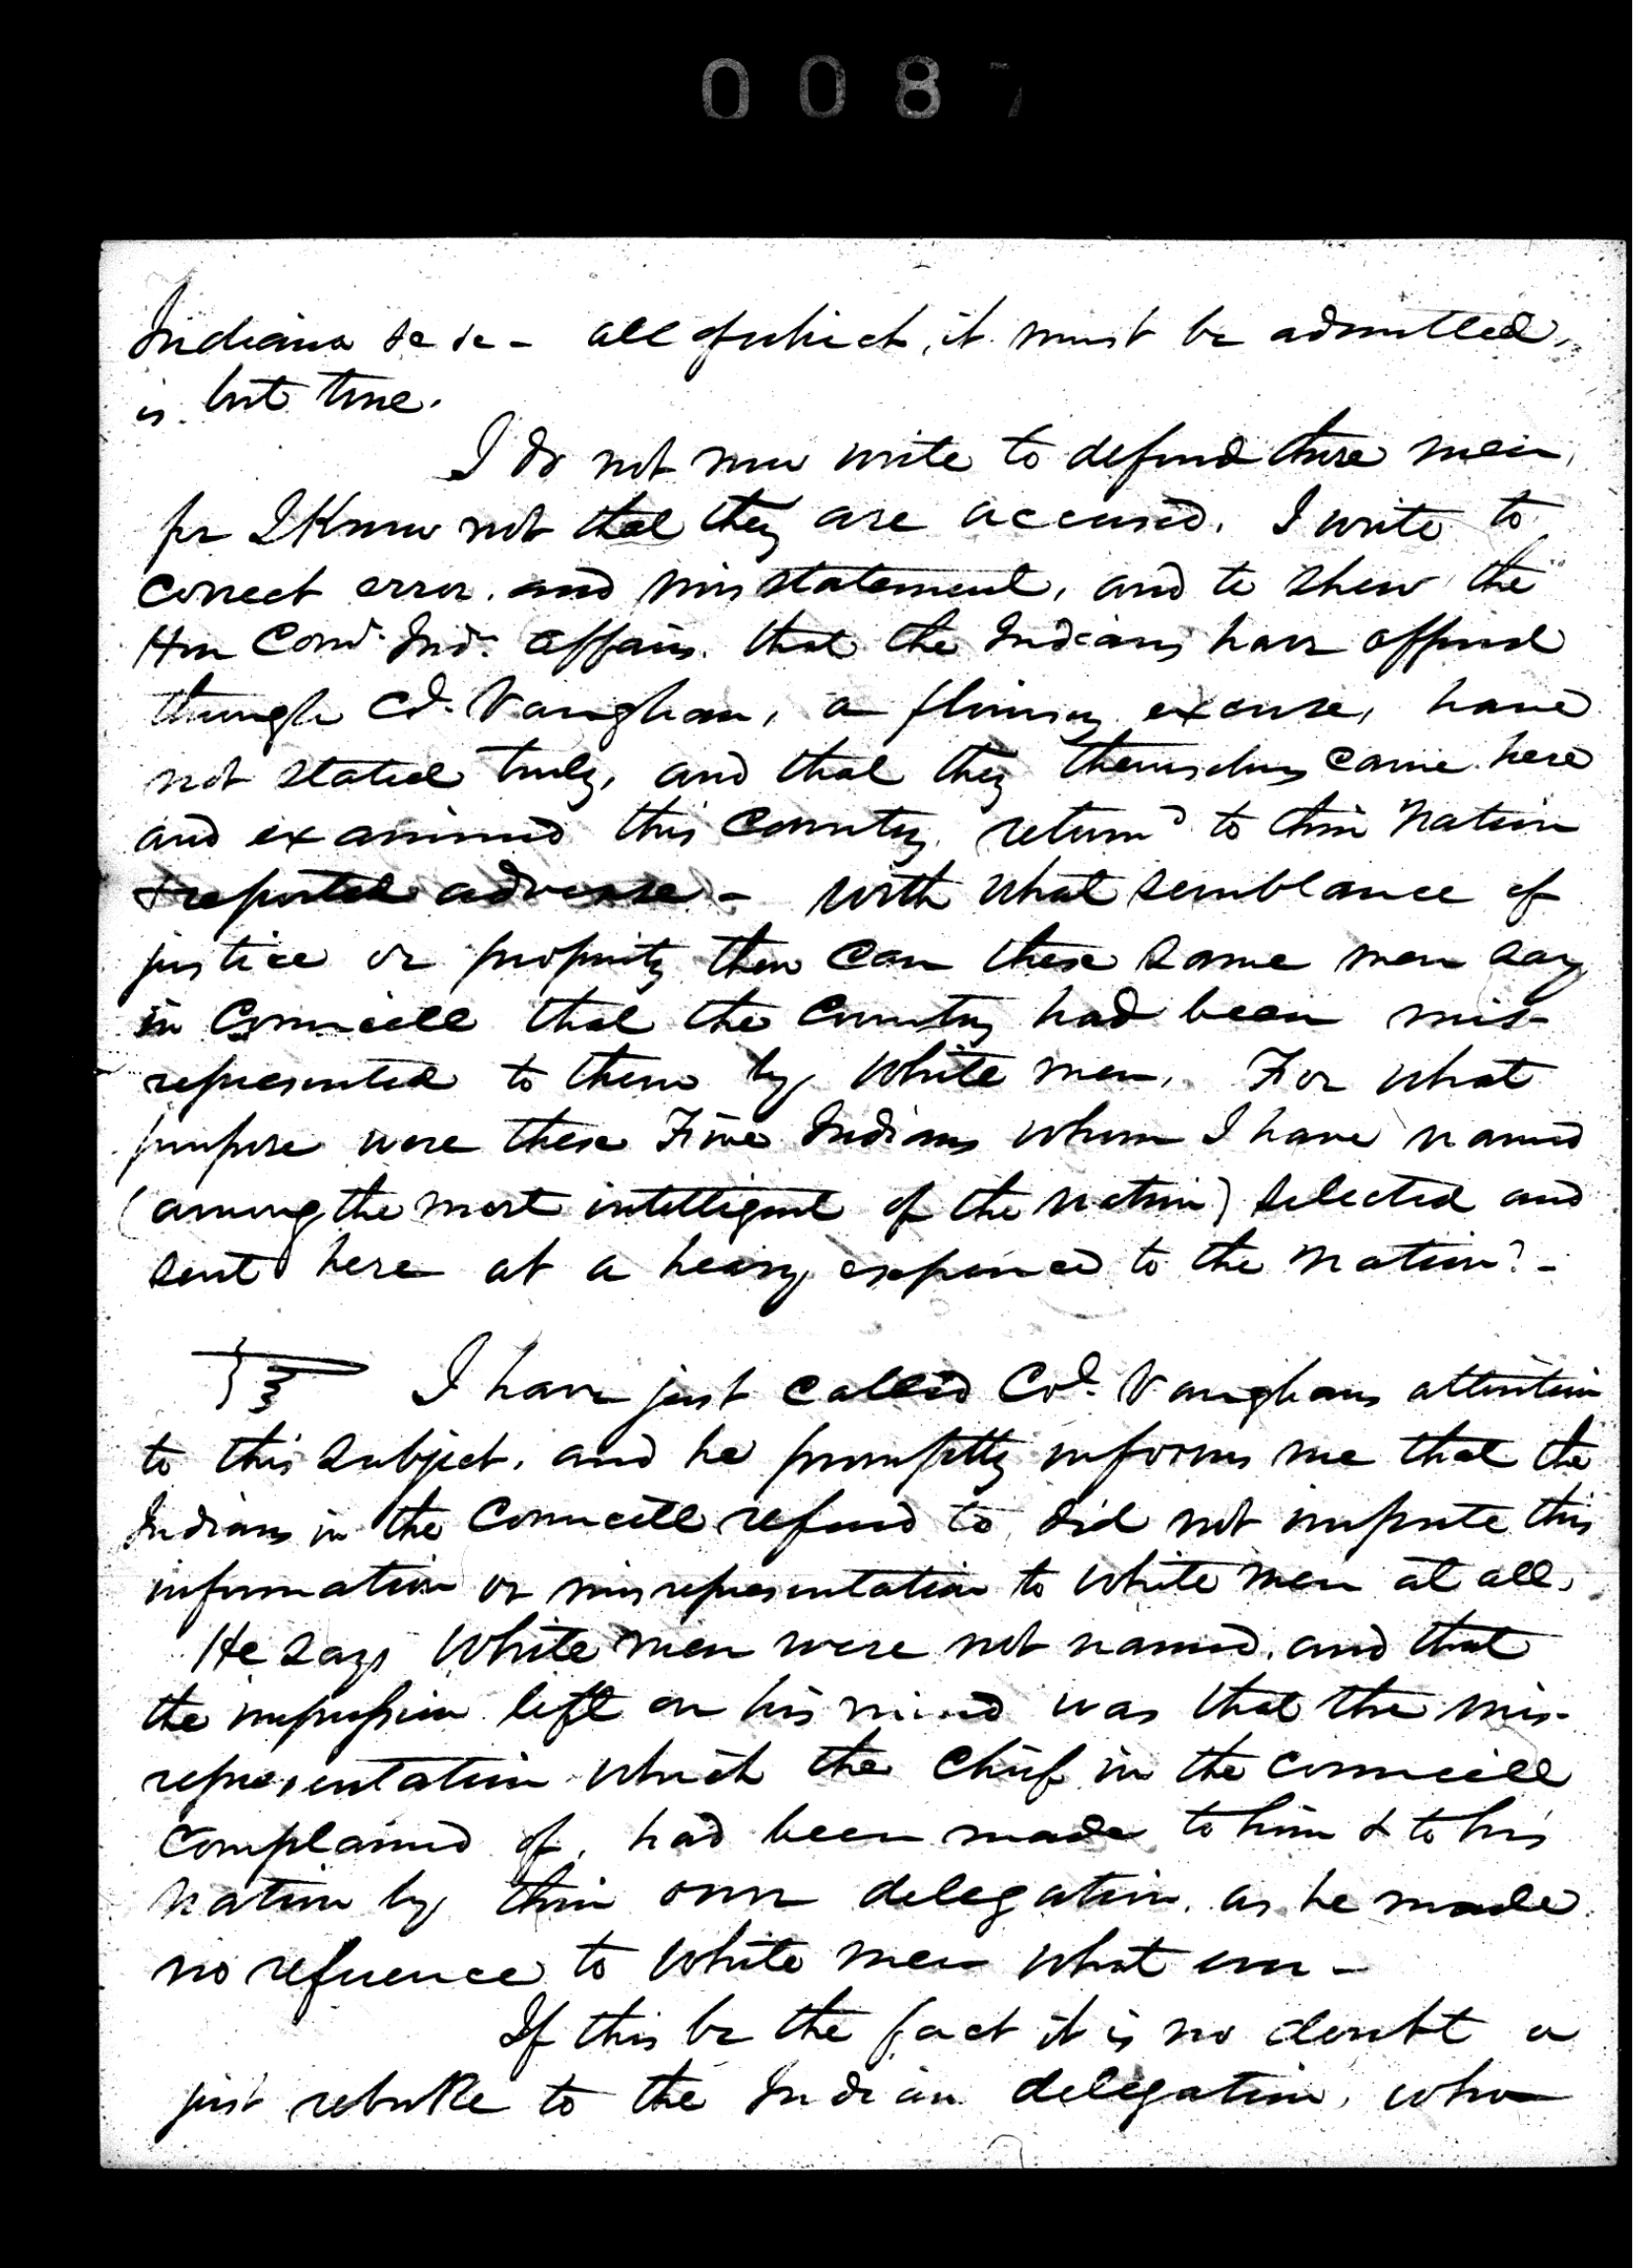 0087
Indians &c &c - all of which, it must be admitted,
is but true.
I do not now write to defend these men,
for I Know not that they are accused. I write to
correct error and misstatement, and to shew the
Hon Comr. Ind. Affairs. that the Indians have offered
through Col. Vaughan, a flimsy excuse, have
not stated truly, and that they themselves came here
and examined this Country, returnd to their Nation
& reported adverse - With what semblance of
justice or propriety then can these same men say
in Councill that the Country had been mis-
represented to them by White men. For what
purpose were these Five Indians whom I have named
(among the most intelligent of the nation) selected and
sent here at a heavy expence to the Nation? -
I have just called Col. Vaughans attention
to this subject, and he promptly informs me that the
Indians in the Councill refered to, did not impute this
information or misrepresentation to White men at all.
He says White men were not named, and that
the impression left on his mind was that the mis-
representation which the Chief in the Councill
Complained of, had been made to him & to his
Nation by their own delegation, as he made
no reference to White men what ever -
If this be the fact it is no doubt a
just rebuke to the Indian delegation, who